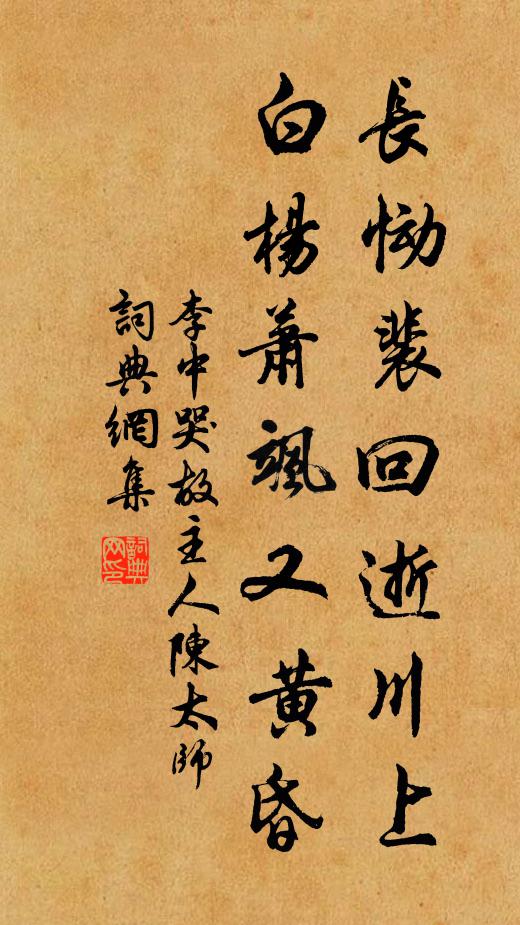 長慟裴回逝川上
白楊蕭颯又黃昏
李中哭故主人陳太師
詞典網集
詞典
網印